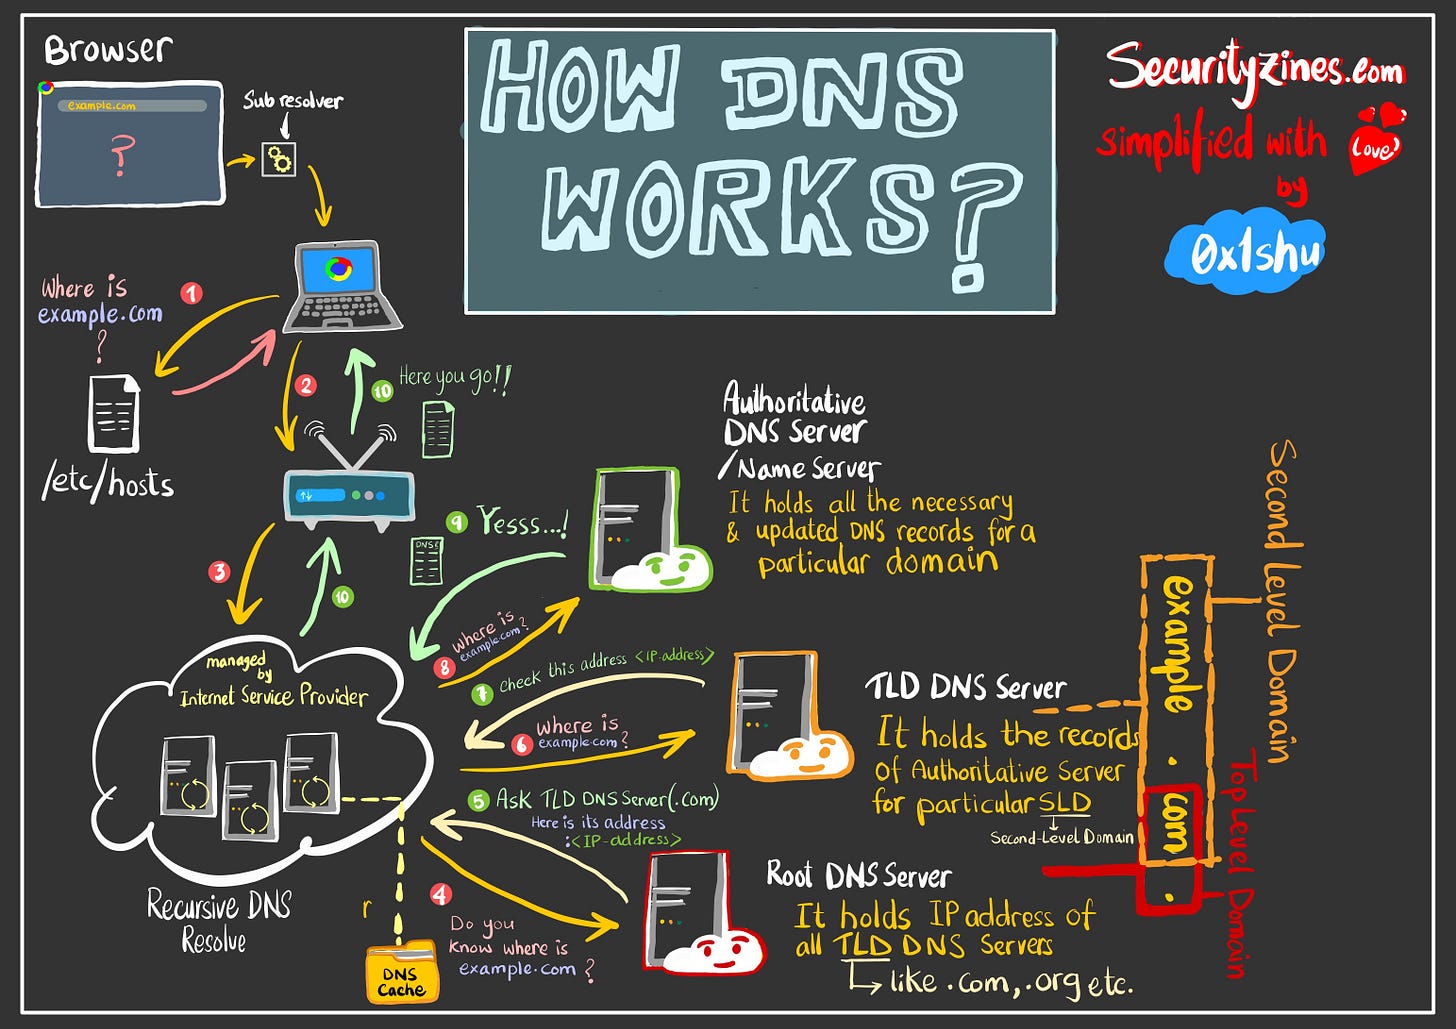 Browser
example.com
?
Sub resolver
HOW DNS
WORKS?
SecurityZines.com
simplified with
Love
by
0x1shu
Where is
example.com
?
1
/etc/hosts
2
10
Here you go!!
3
10
managed
by
Internet Service Provider
Recursive DNS
Resolve
r
DNS
Cache
9
Yesss...!
DNSE
8
Where is
example.com?
7
Check this address <IP-address>
6
Where is
example.com?
5
Ask TLD DNS Server(.com)
Here is its address
:<IP-address>
4
Do you
know where is
example.com ?
Authoritative
DNS Server
/Name Server
It holds all the necessary
& updated DNS records for a
particular domain
TLD DNS Server
It holds the records
of Authoritative Server
for particular SLD
Second-Level Domain
Root DNS Server
It holds IP address of
all TLD DNS Servers
like .com, .org etc.
example.com.
Second Level Domain
Top Level Domain